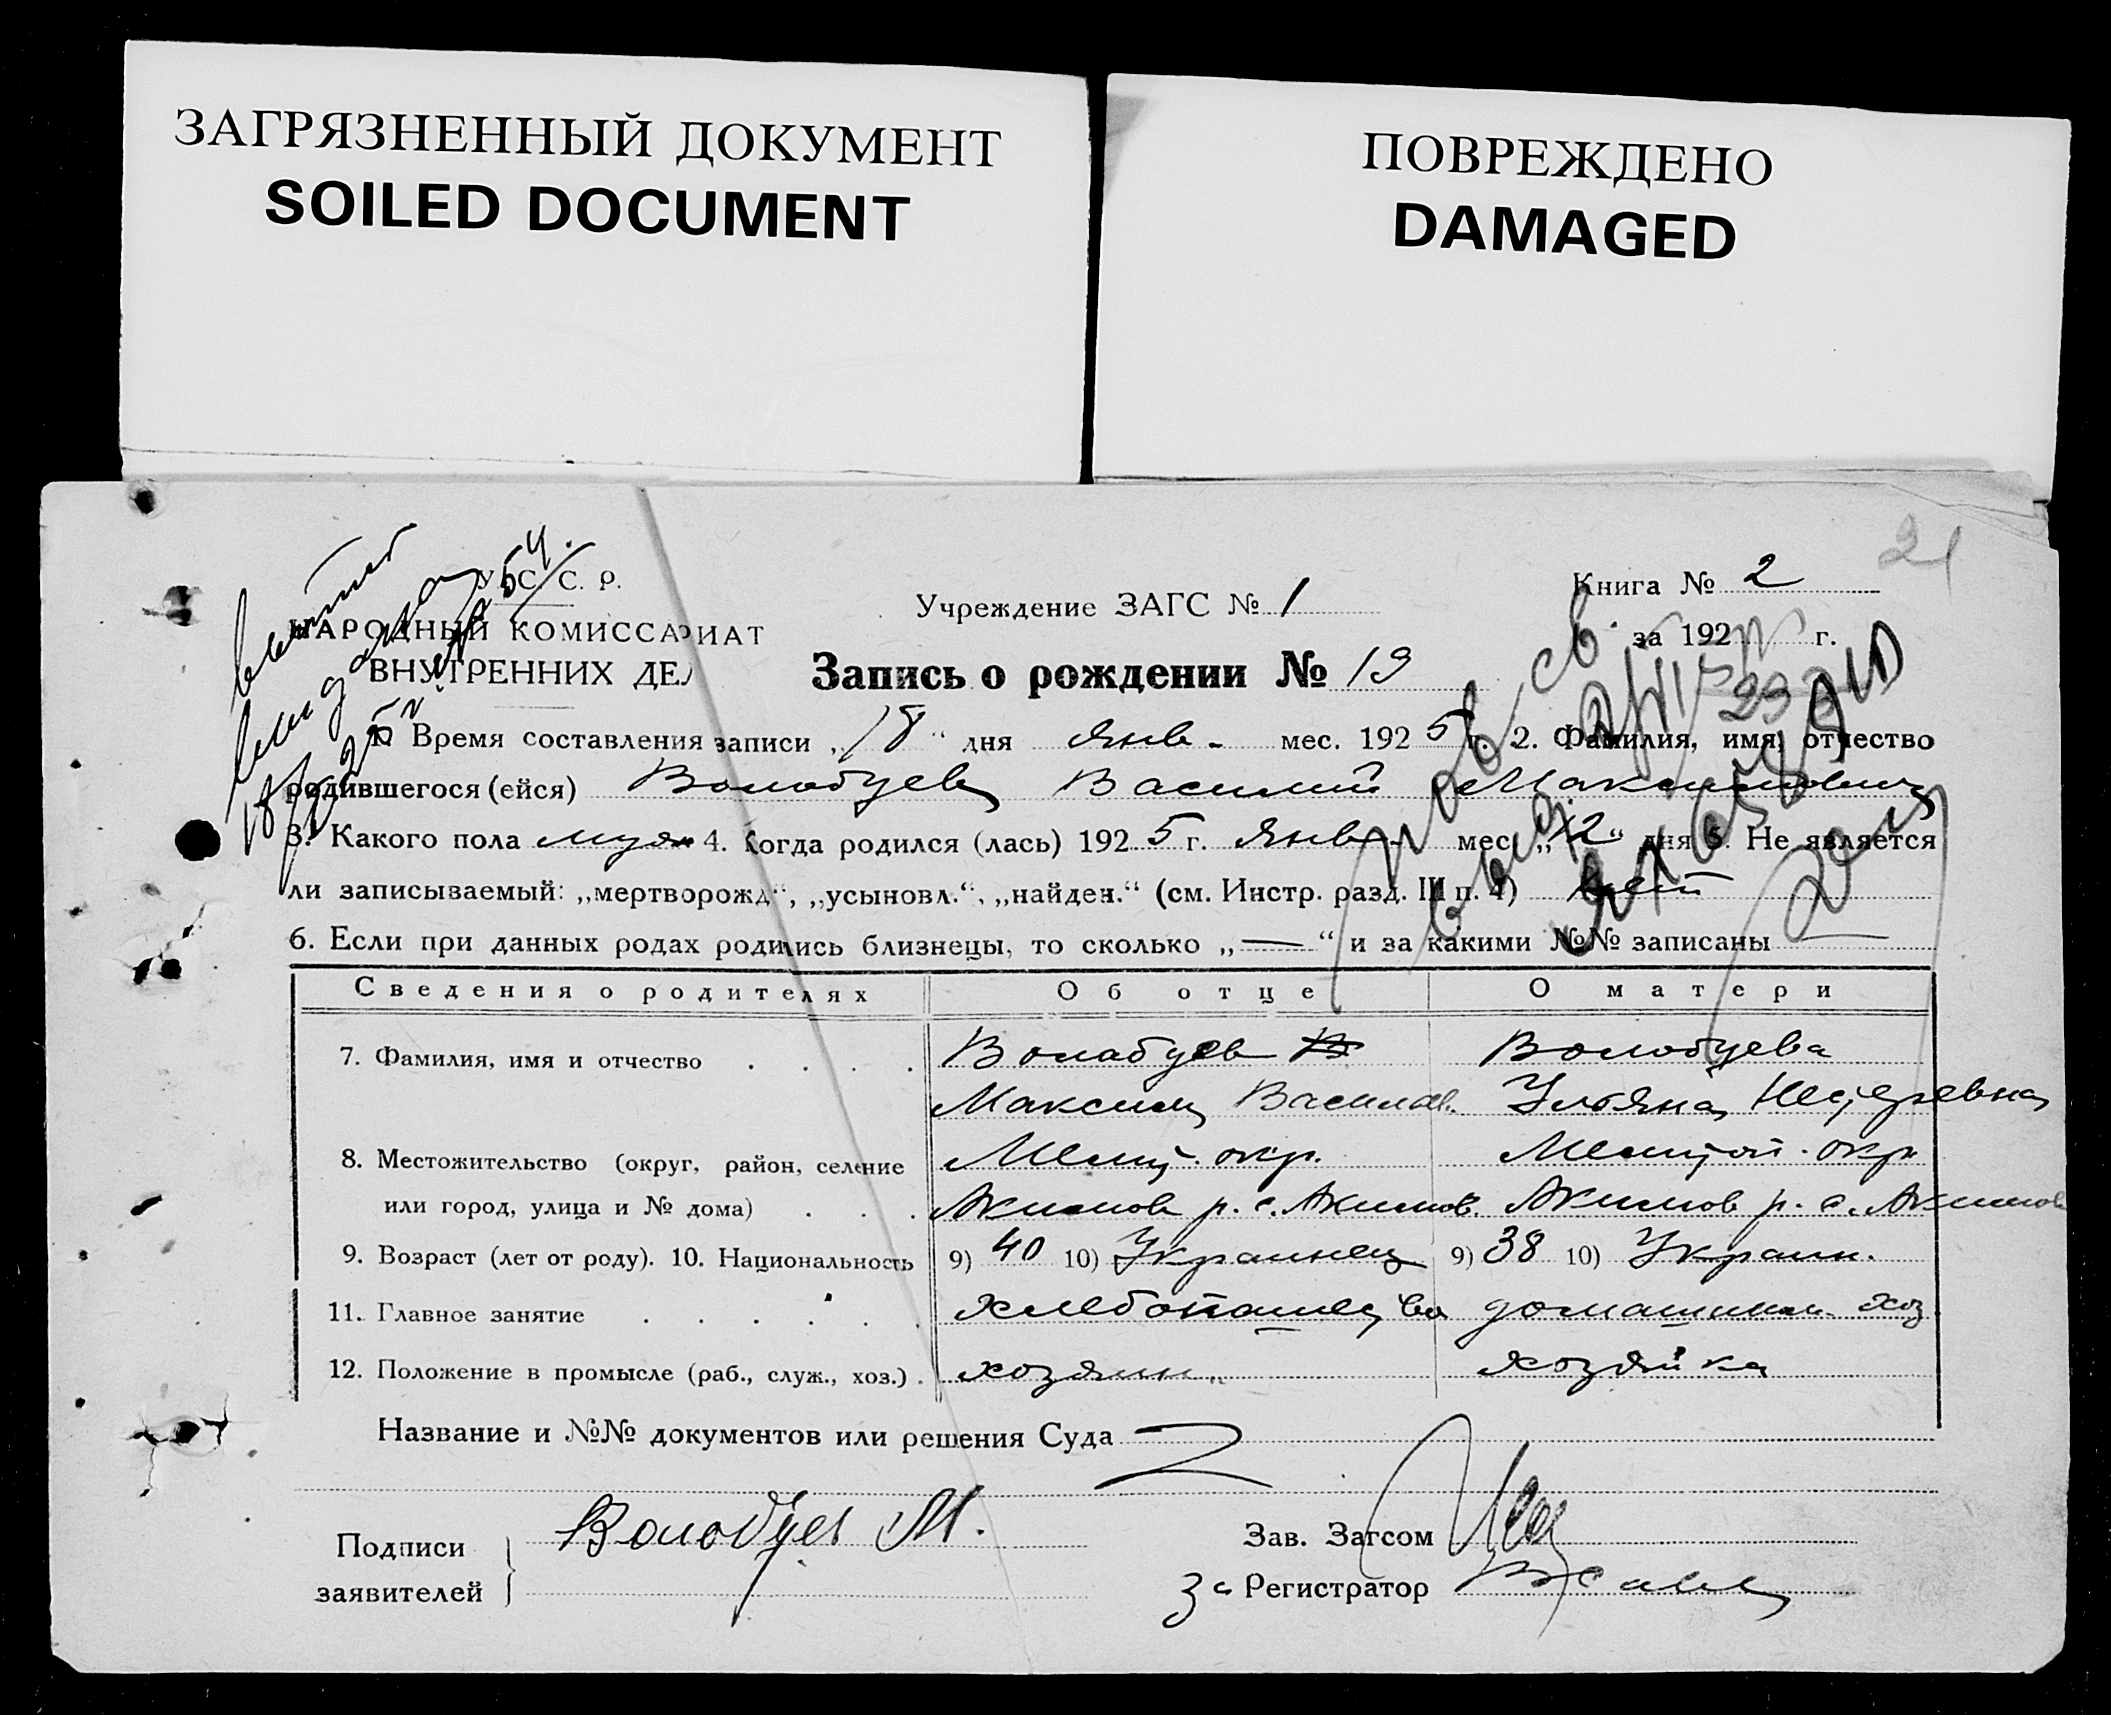 ЗАГРЯЗНЕННЫЙ ДОКУМЕНТ
SOILED DOCUMENT
ПОВРЕЖДЕНО
DAMAGED
21
У. С. С. Р.
НАРОДНЫЙ КОМИССАРИАТ
ВНУТРЕННИХ ДЕЛ
Учреждение ЗАГС № 1
Книга № 2
за 192 г.
Запись о рождении № 19
1. Время составления записи „18“ дня янв. мес. 1925 г. 2. Фамилия, имя, отчество
родившегося (ейся) Волобуев Василий Максимович
3. Какого пола муж 4. Когда родился (лась) 1925 г. янв. мес. „12“ дня 5. Не является
ли записываемый: „мертворожд“, „усыновл.“, „найден.“ (см. Инстр. разд. III п. 4) нет
6. Если при данных родах родились близнецы, то сколько „—“ и за какими №№ записаны —
Сведения о родителях Об отце О матери
7. Фамилия, имя и отчество . . . . Волабуев Волобуева
Максим Василев. Ульяна
8. Местожительство (округ, район, селение Мелит. окр. Мелитоп. окр.
или город, улица и № дома) . . . Акимов р. с. Акимов. Акимов р. с. Акимов
9. Возраст (лет от роду). 10. Национальность 9) 40 10) Украинец 9) 38 10) Украин.
11. Главное занятие . . . . . . хлебопашество домашнин. хоз.
12. Положение в промысле (раб., служ., хоз.) . хозяин хозяйка
Название и №№ документов или решения Суда
Подписи
заявителей
Волобуев М.
Зав. Загсом
За Регистратор